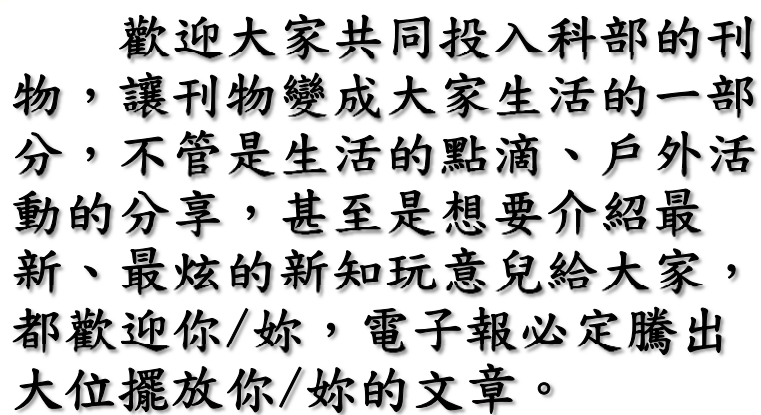 歡迎大家共同投入科部的刊
物，讓刊物變成大家生活的一部
分，不管是生活的點滴、戶外活
動的分享，甚至是想要介紹最
新、最炫的新知玩意兒給大家，
都歡迎你/妳，電子報必定騰出
大位擺放你/妳的文章。